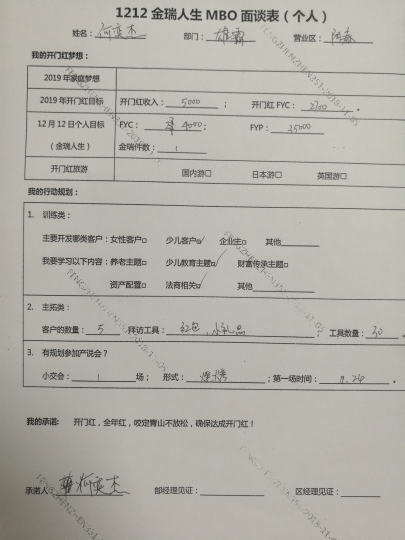 1212 金瑞人生 MBO 面谈表（个人）
姓名：何奕杰 部门：雄霸 营业区：阳春
我的开门红梦想：
2019 年家庭梦想
2019 年开门红目标 开门红收入：5000 ； 开门红 FYC：2700 。
12 月 12 日个人目标 FYC：4000； FYP：25000
（金瑞人生） 金瑞件数：1
开门红旅游 国内游□ 日本游□ 英国游□
我的行动规划：
1. 训练类：
主要开发哪类客户：女性客户□ 少儿客户□ 企业主□ 其他
我要学习以下内容：养老主题□ 少儿教育主题□ 财富传承主题□
资产配置□ 法商相关□ 其他
2. 主拓类：
客户的数量：5 拜访工具：红包、小礼品 ； 工具数量：30 。
3. 有规划参加产说会？
小交会：1 场； 形式：烧烤 ；第一场时间：11.24 。
我的承诺：
开门红，全年红，咬定青山不放松，确保达成开门红！
承诺人：何奕杰 部经理见证： 区经理见证：